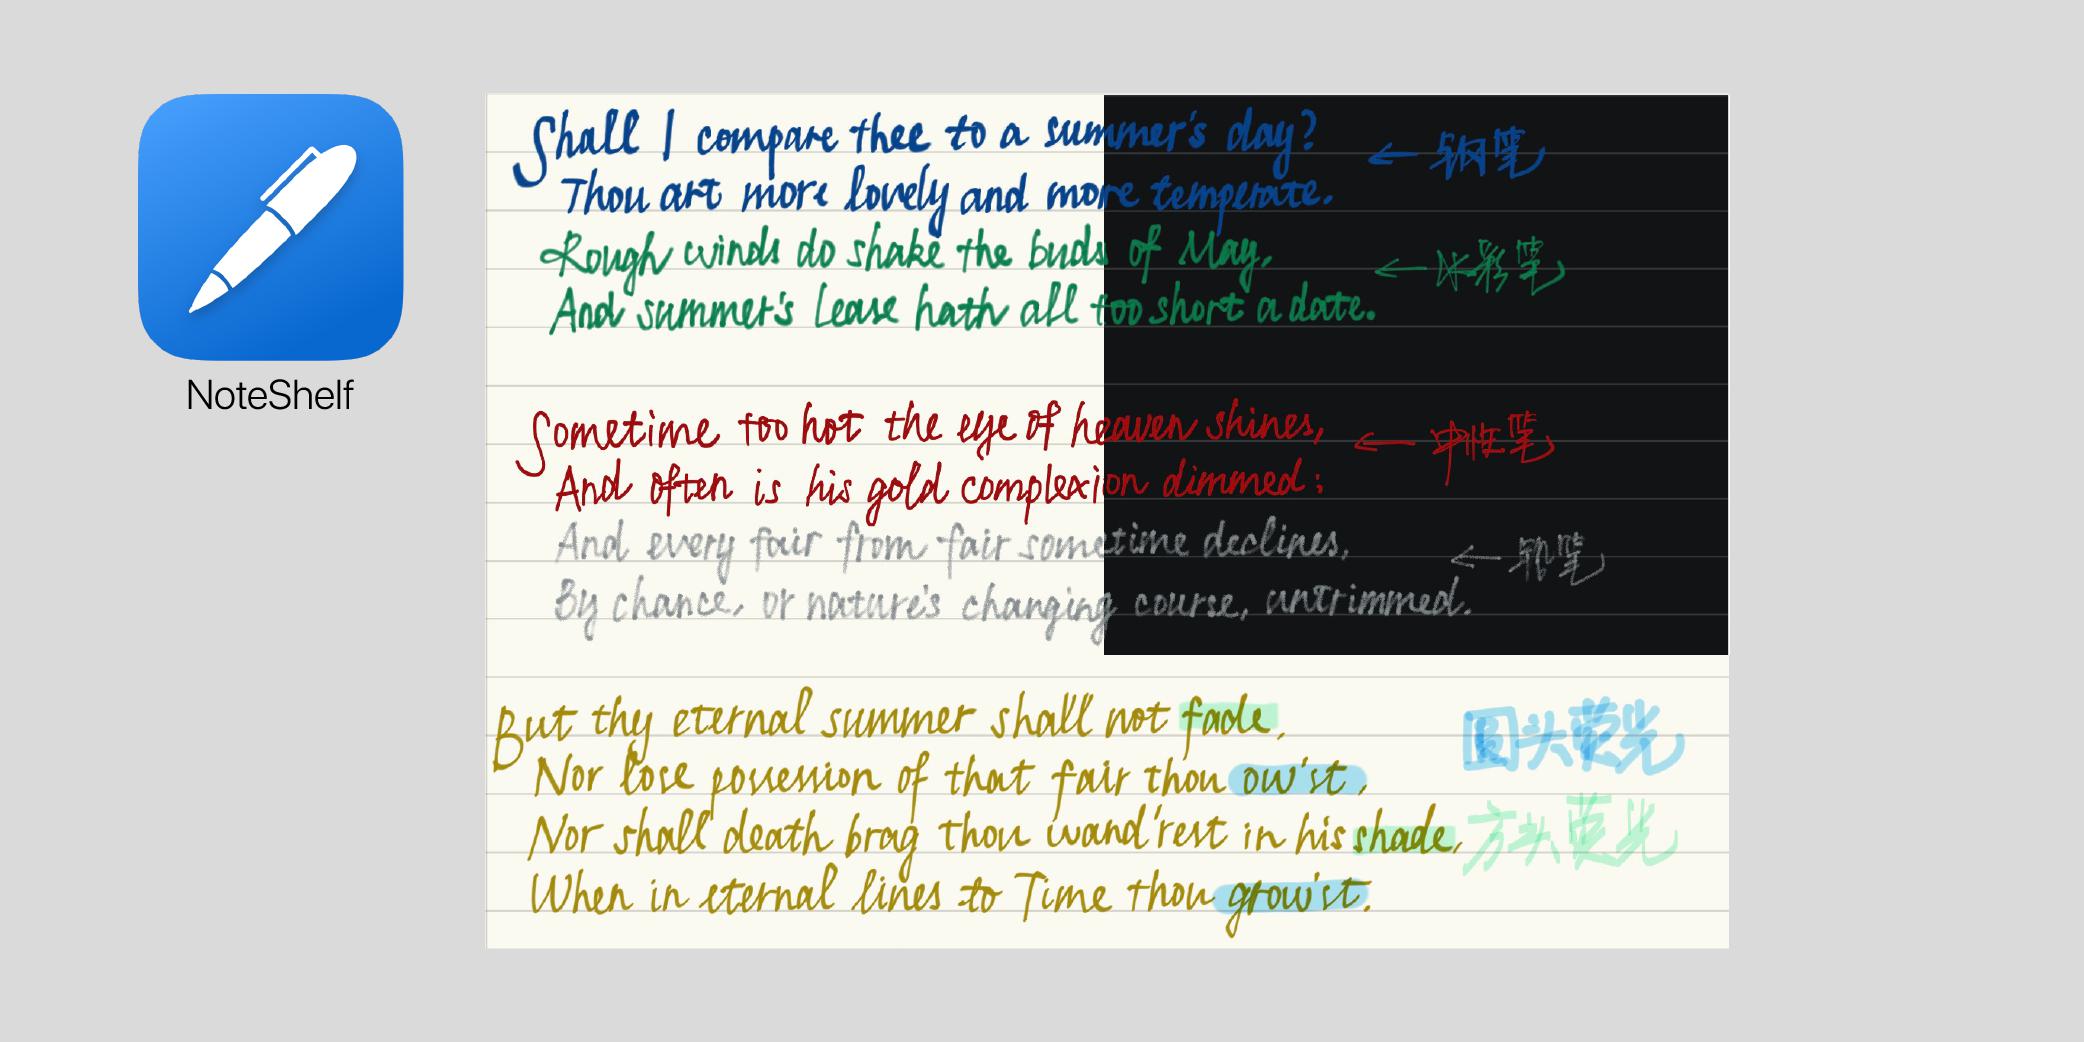 NoteShelf
Shall I compare thee to a summer's day? ← 钢笔
Thou art more lovely and more temperate.
Rough winds do shake the buds of May, ← 水彩笔
And summer's lease hath all too short a date.
Sometime too hot the eye of heaven shines, ← 中性笔
And often is his gold complexion dimmed;
And every fair from fair sometime declines, ← 铅笔
By chance, or nature's changing course, untrimmed.
But thy eternal summer shall not fade, 圆头荧光
Nor lose possession of that fair thou ow'st,
Nor shall death brag thou wand'rest in his shade, 方头荧光
When in eternal lines to Time thou grow'st.